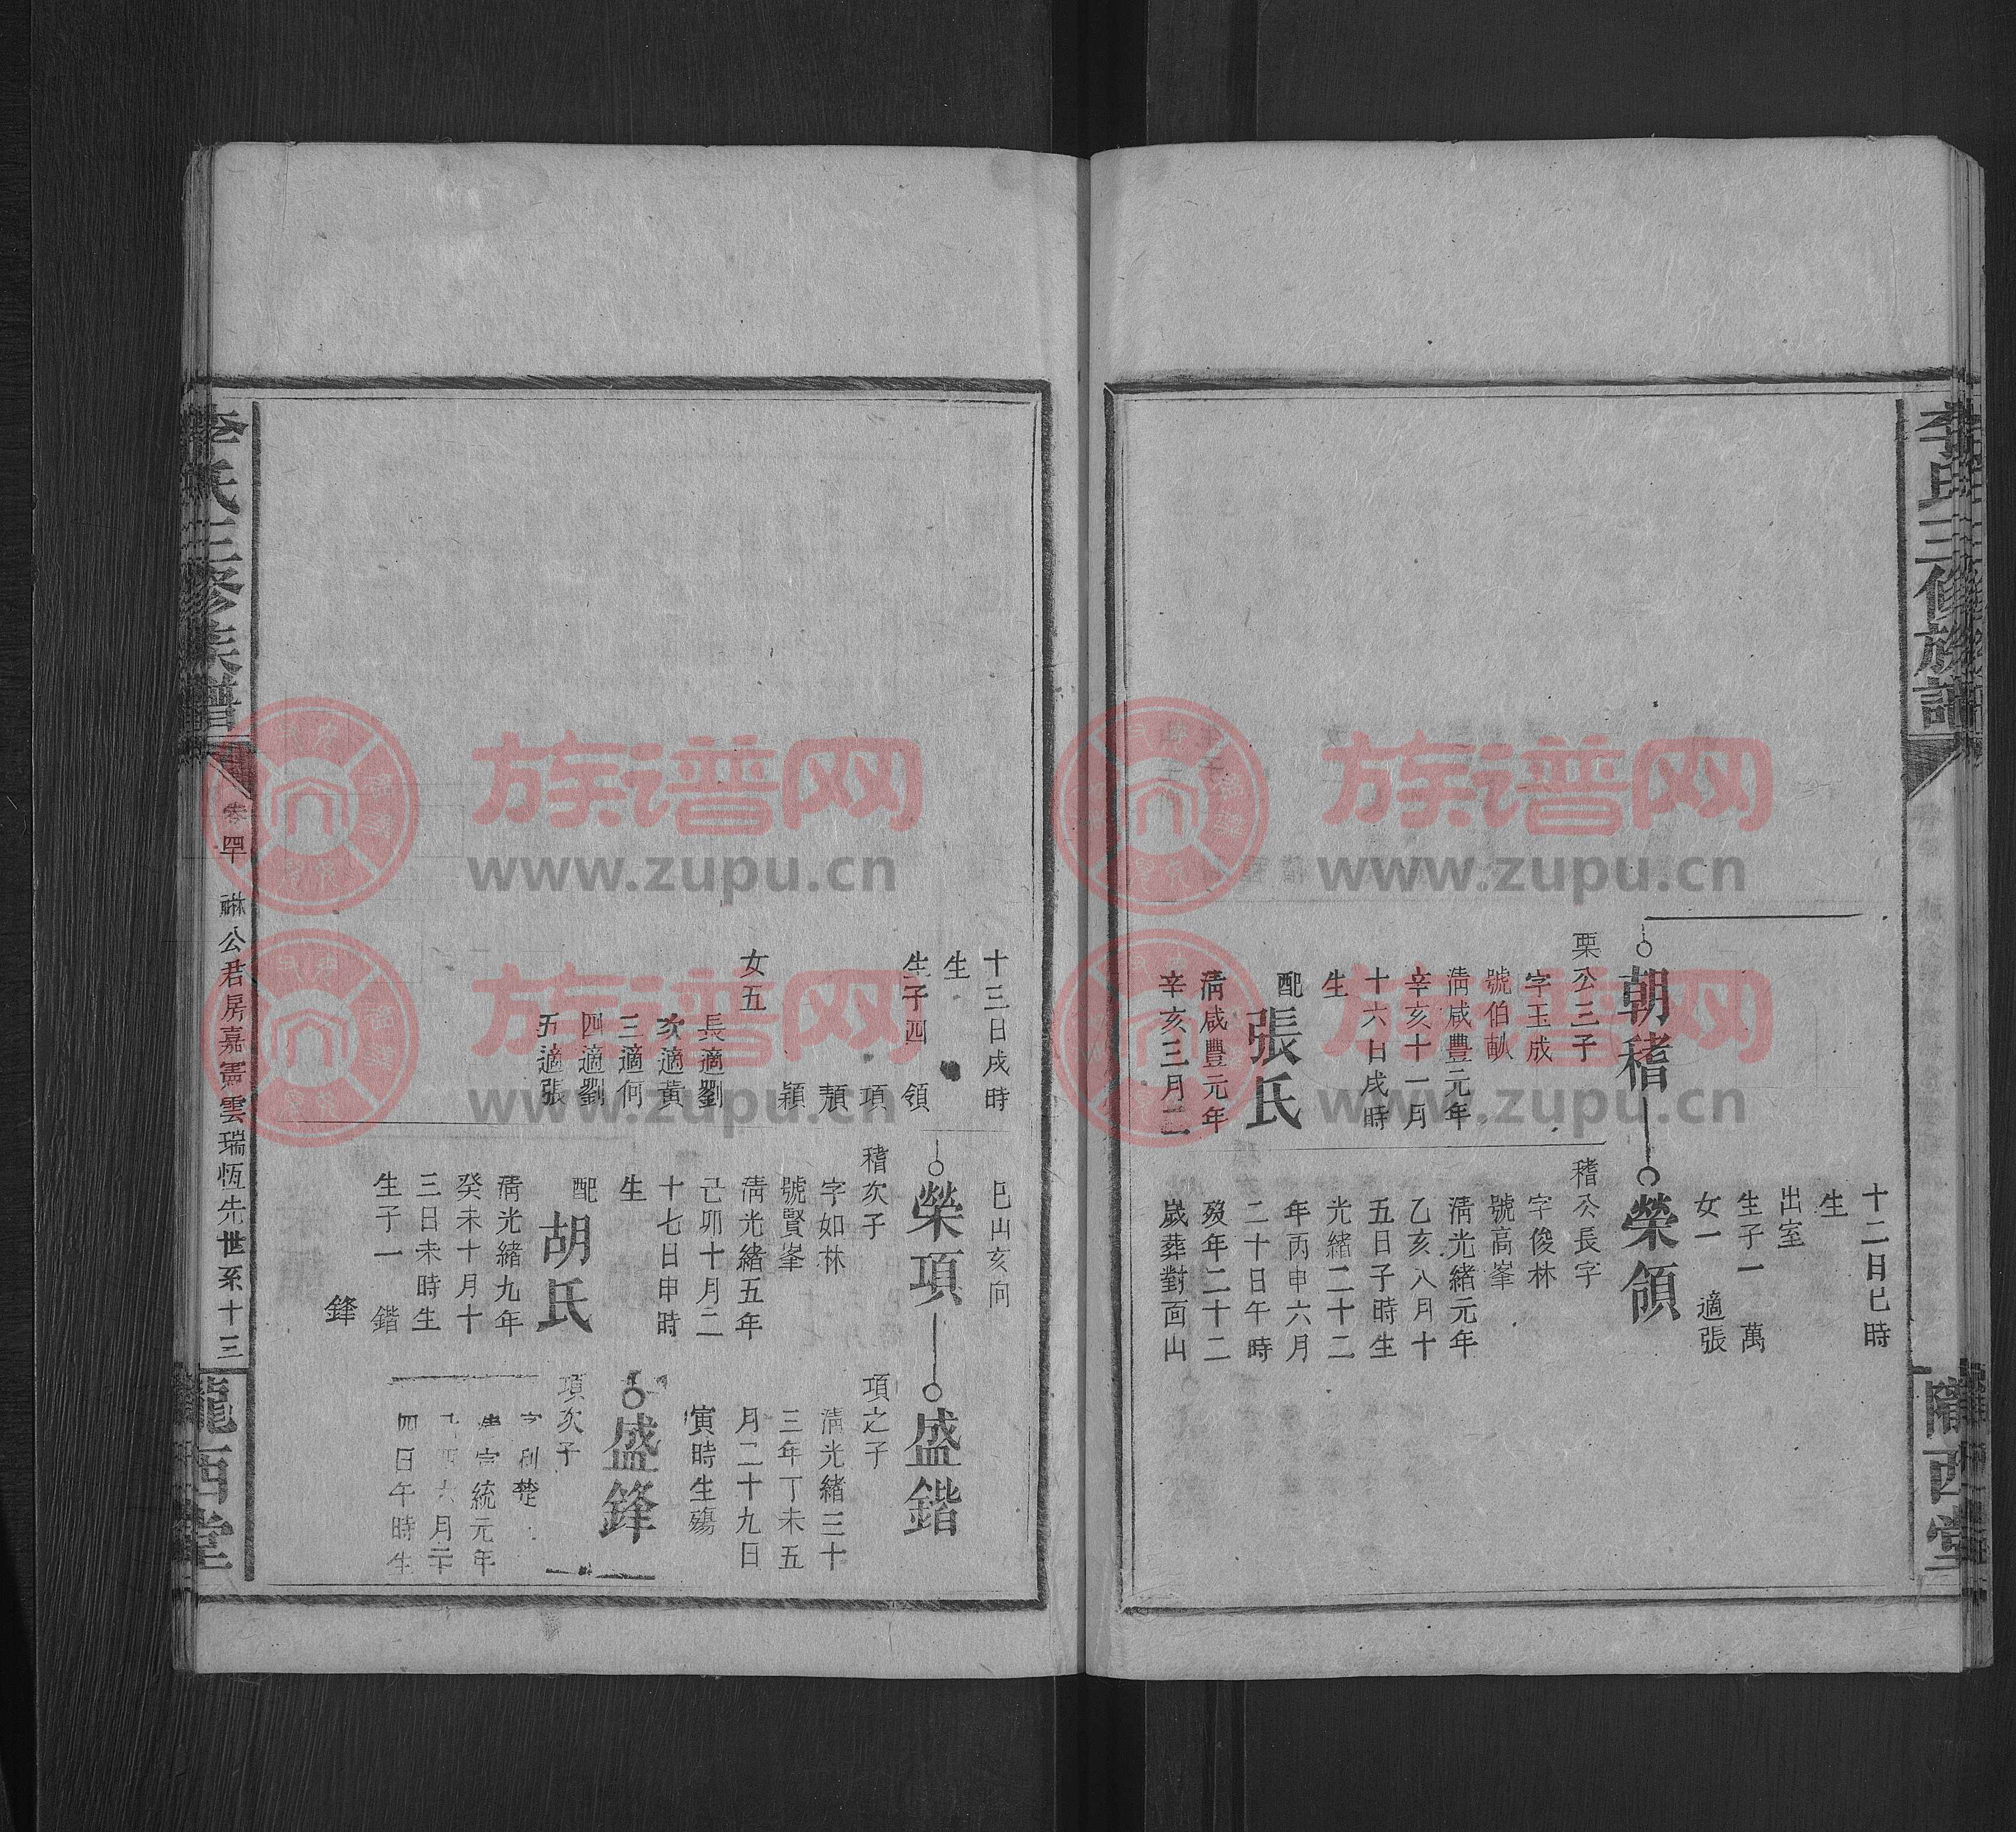 李氏三修族譜
隴西堂
十二日巳時
生
出室
生子一 萬
女一 適張
朝稽
榮領
栗公三子
字玉成
號伯畝
淸咸豐元年
辛亥十一月
十六日戌時
生
配張氏
淸咸豐元年
辛亥三月二
稽公長字
字俊林
號高峯
淸光緒元年
乙亥八月十
五日子時生
光緒二十二
年丙申六月
二十日午時
歿年二十二
歲葬對面山
十三日戌時
生
生子四 領
項
頽
穎
女五
長適劉
次適黃
三適何
四適劉
五適張
巳山亥向
榮項
稽次子
字如林
號賢峯
淸光緒五年
己卯十月二
十七日申時
生
配胡氏
淸光緒九年
癸未十月十
三日未時生
生子一 鍇
鋒
盛鍇
項之子
淸光緒三十
三年丁未五
月二十九日
寅時生殤
盛鋒
項次子
楚
宣統元年
六月二十
四日午時生
李氏三修族譜
卷四
公君房嘉憲雲瑞恆先世系十三
隴西堂
族谱网
www.zupu.cn
族谱网
www.zupu.cn
族谱网
www.zupu.cn
族谱网
www.zupu.cn